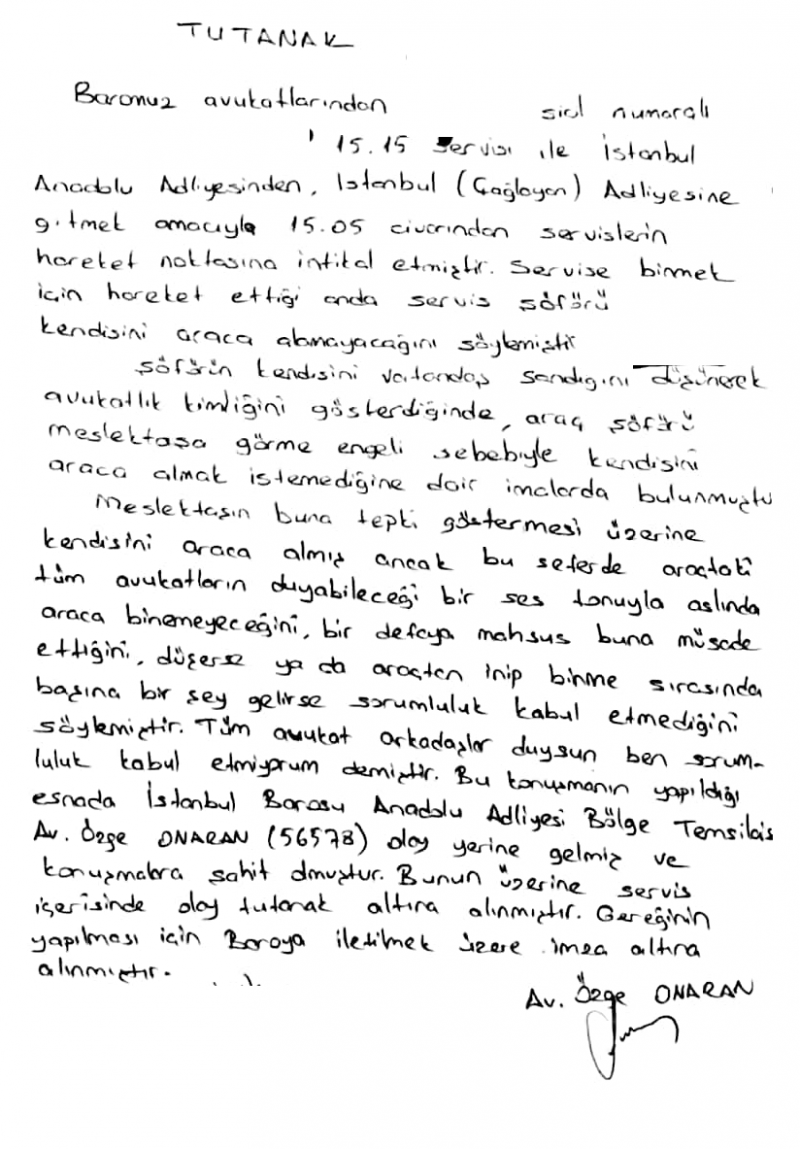 TUTANAK
Baronuz avukatlarından sicil numaralı
15.15 servisi ile İstanbul
Anadolu Adliyesinden, Istanbul (Çağlayan) Adliyesine
gitmek amacıyla 15.05 civarından servislerin
hareket noktasına intikal etmiştir. Servise binmek
için hareket ettiği anda servis şöförü
kendisini araca almayacağını söylemiştir
şöförün kendisini vatandaş sandığını düşünerek
avukatlık kimliğini gösterdiğinde, araç şöförü
meslektaşa görme engeli sebebiyle kendisini
araca almak istemediğine dair imalarda bulunmuştu
Meslektaşın buna tepki göstermesi üzerine
kendisini araca almış ancak bu seferde araçtaki
tüm avukatların duyabileceği bir ses tonuyla aslında
araca binemeyeceğini, bir defaya mahsus buna müsade
ettiğini, düşerse ya da araçtan inip binme sırasında
başına bir şey gelirse sorumluluk kabul etmediğini
söylemiştir. Tüm avukat arkadaşlar duysun ben sorum-
luluk kabul etmiyorum demiştir. Bu konuşmanın yapıldığı
esnada İstanbul Barosu Anadolu Adliyesi Bölge Temsilcis
Av. Özge ONARAN (56578) olay yerine gelmiş ve
konuşmalara şahit olmuştur. Bunun üzerine servis
içerisinde olay tutanak altına alınmıştır. Gereğinin
yapılması için Baroya iletilmek üzere imza altına
alınmıştır.
Av. Özge ONARAN